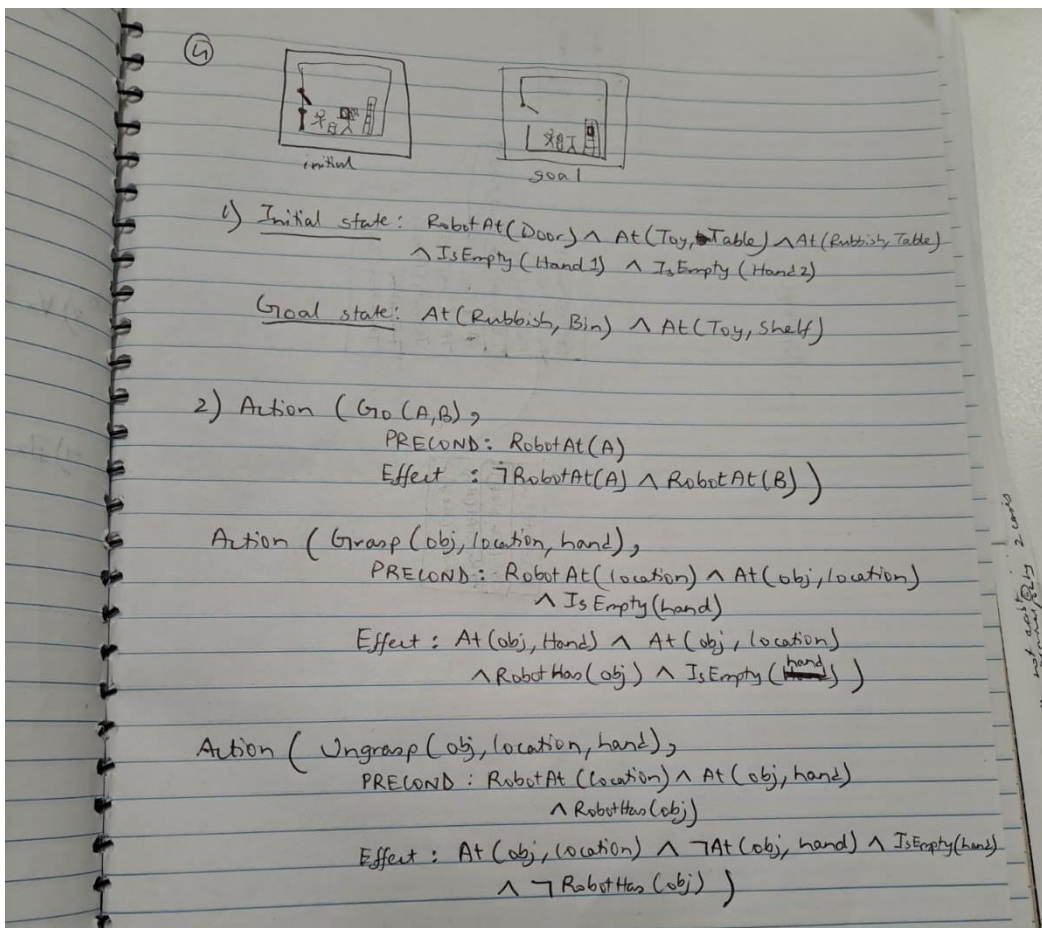 4
initial
goal
1) Initial state: RobotAt(Door) ∧ At(Toy, Table) ∧ At(Rubbish, Table)
∧ IsEmpty(Hand1) ∧ IsEmpty(Hand2)
Goal state: At(Rubbish, Bin) ∧ At(Toy, Shelf)
2) Action (Go(A,B),
PRECOND: RobotAt(A)
Effect : ¬RobotAt(A) ∧ RobotAt(B))
Action (Grasp(obj, location, hand),
PRECOND: RobotAt(location) ∧ At(obj, location)
∧ IsEmpty(hand)
Effect: At(obj, Hand) ∧ At(obj, location)
∧ RobotHas(obj) ∧ IsEmpty(hand))
Action (Ungrasp(obj, location, hand),
PRECOND: RobotAt(location) ∧ At(obj, hand)
∧ RobotHas(obj)
Effect: At(obj, location) ∧ ¬At(obj, hand) ∧ IsEmpty(hand)
∧ ¬RobotHas(obj))